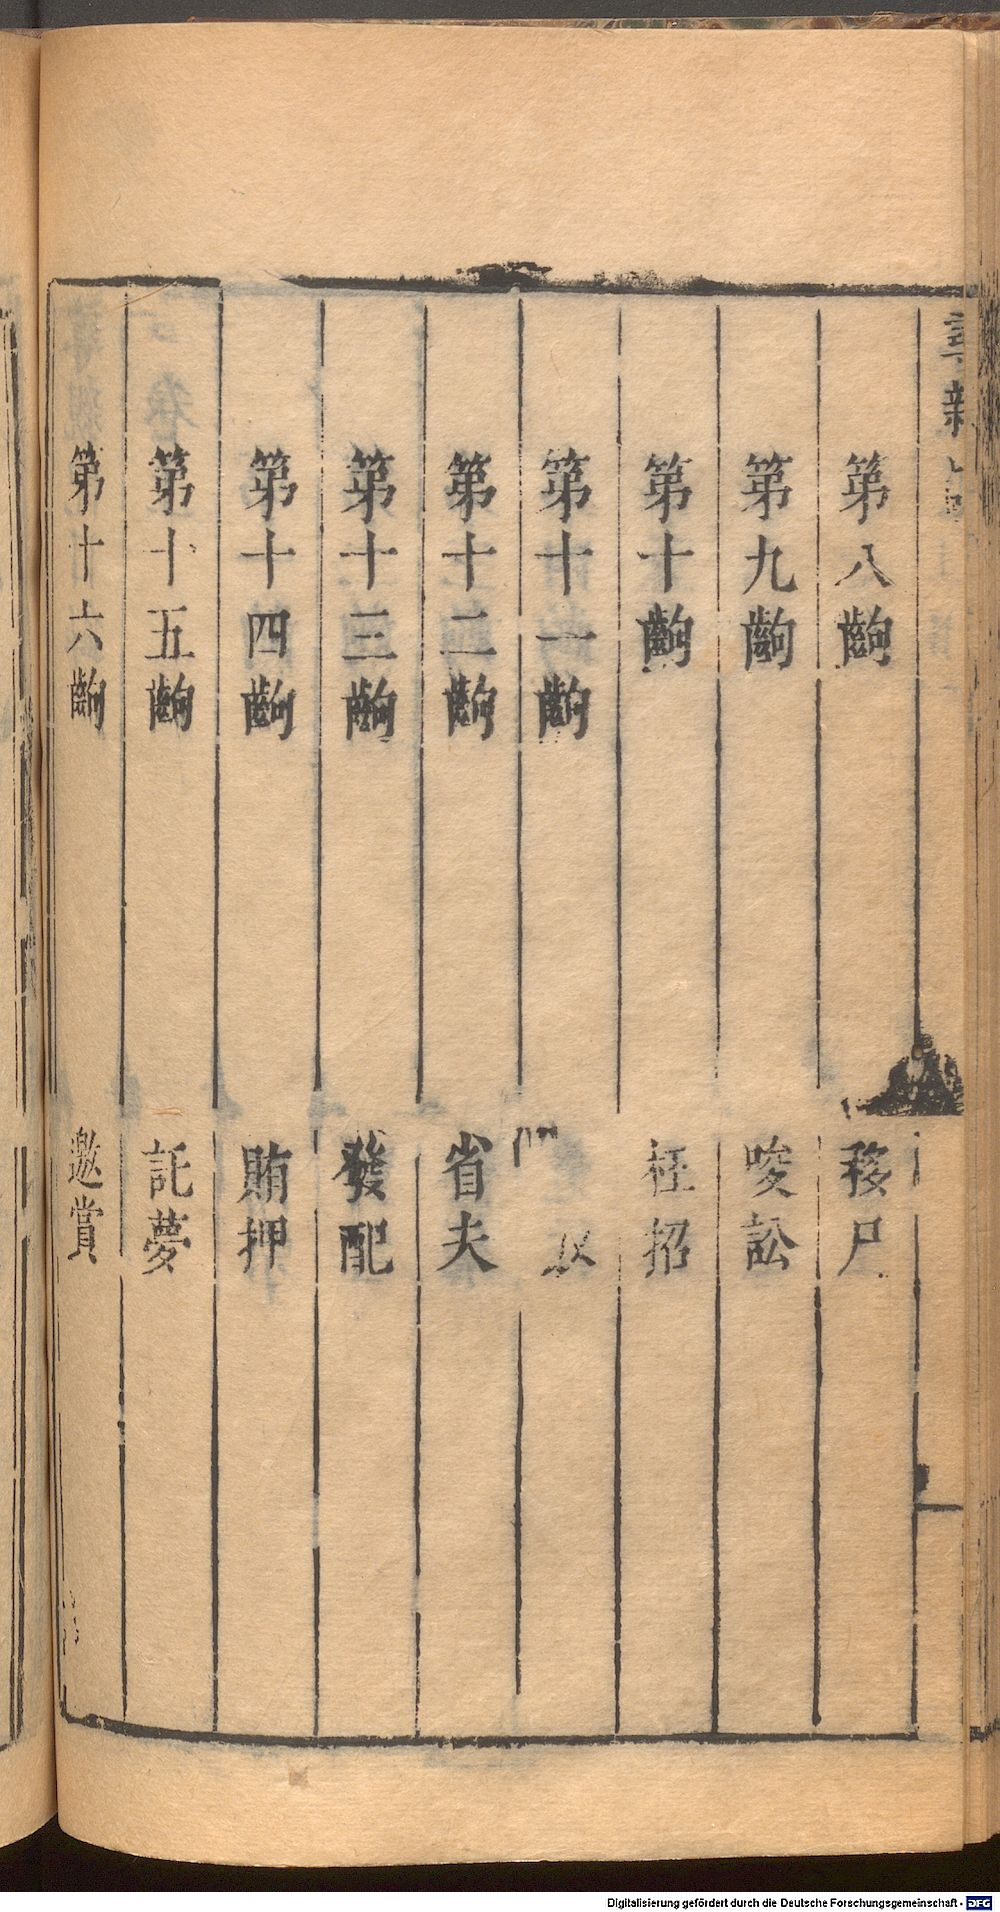 第八齣 移尸
第九齣 唆訟
第十齣 枉招
第十一齣
第十二齣 省夫
第十三齣 發配
第十四齣 賄押
第十五齣 託夢
第十六齣 邀賞
Digitalisierung gefördert durch die Deutsche Forschungsgemeinschaft - DFG